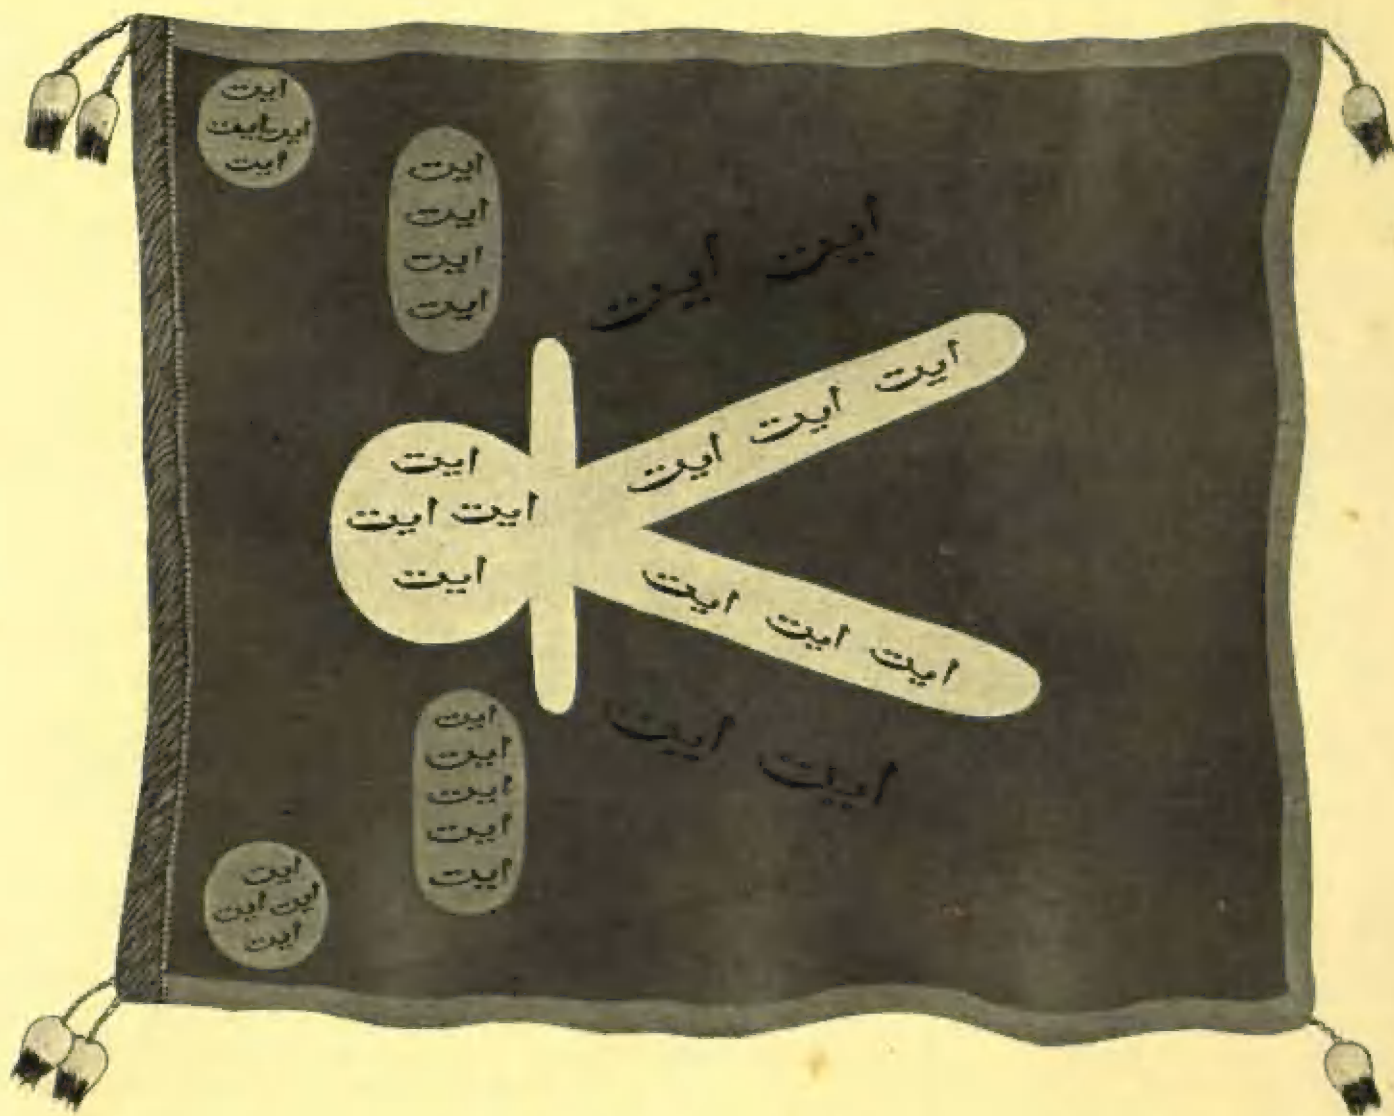 ايت
ايت ايت
ايت
ايت
ايت
ايت
ايت
ايت ايت
ايت ايت ايت
ايت
ايت ايت
ايت
ايت ايت ايت
ايت ايت
ايت
ايت
ايت
ايت
ايت
ايت
ايت ايت
ايت